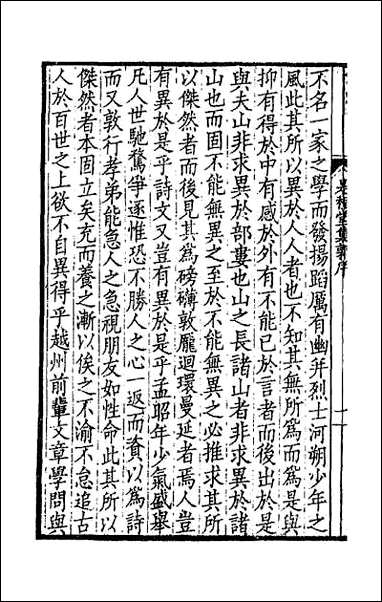 不名一家之學而發揚蹈厲有幽并烈士河朔少年之
風此其所以異於人人者也不知其無所爲而爲是與
抑有得於中有感於外有不能已於言者而後出於是
與夫山非求異於部婁也山之長諸山者非求異於諸
山也而固不能無異之至於不能無異之必推求其所
以傑然者而後見其爲磅礴敦龐迴環曼延者焉人豈
有異於是乎詩文又豈有異於是乎孟昭年少氣盛舉
凡人世馳騖爭逐惟恐不勝人之心一返而資以爲詩
而又敦行孝弟能急人之急視朋友如性命此其所以
傑然者本固立矣充而養之漸以俟之不渝不怠追古
人於百世之上欲不自異得乎越州前輩文章學問與
堂集 序
一